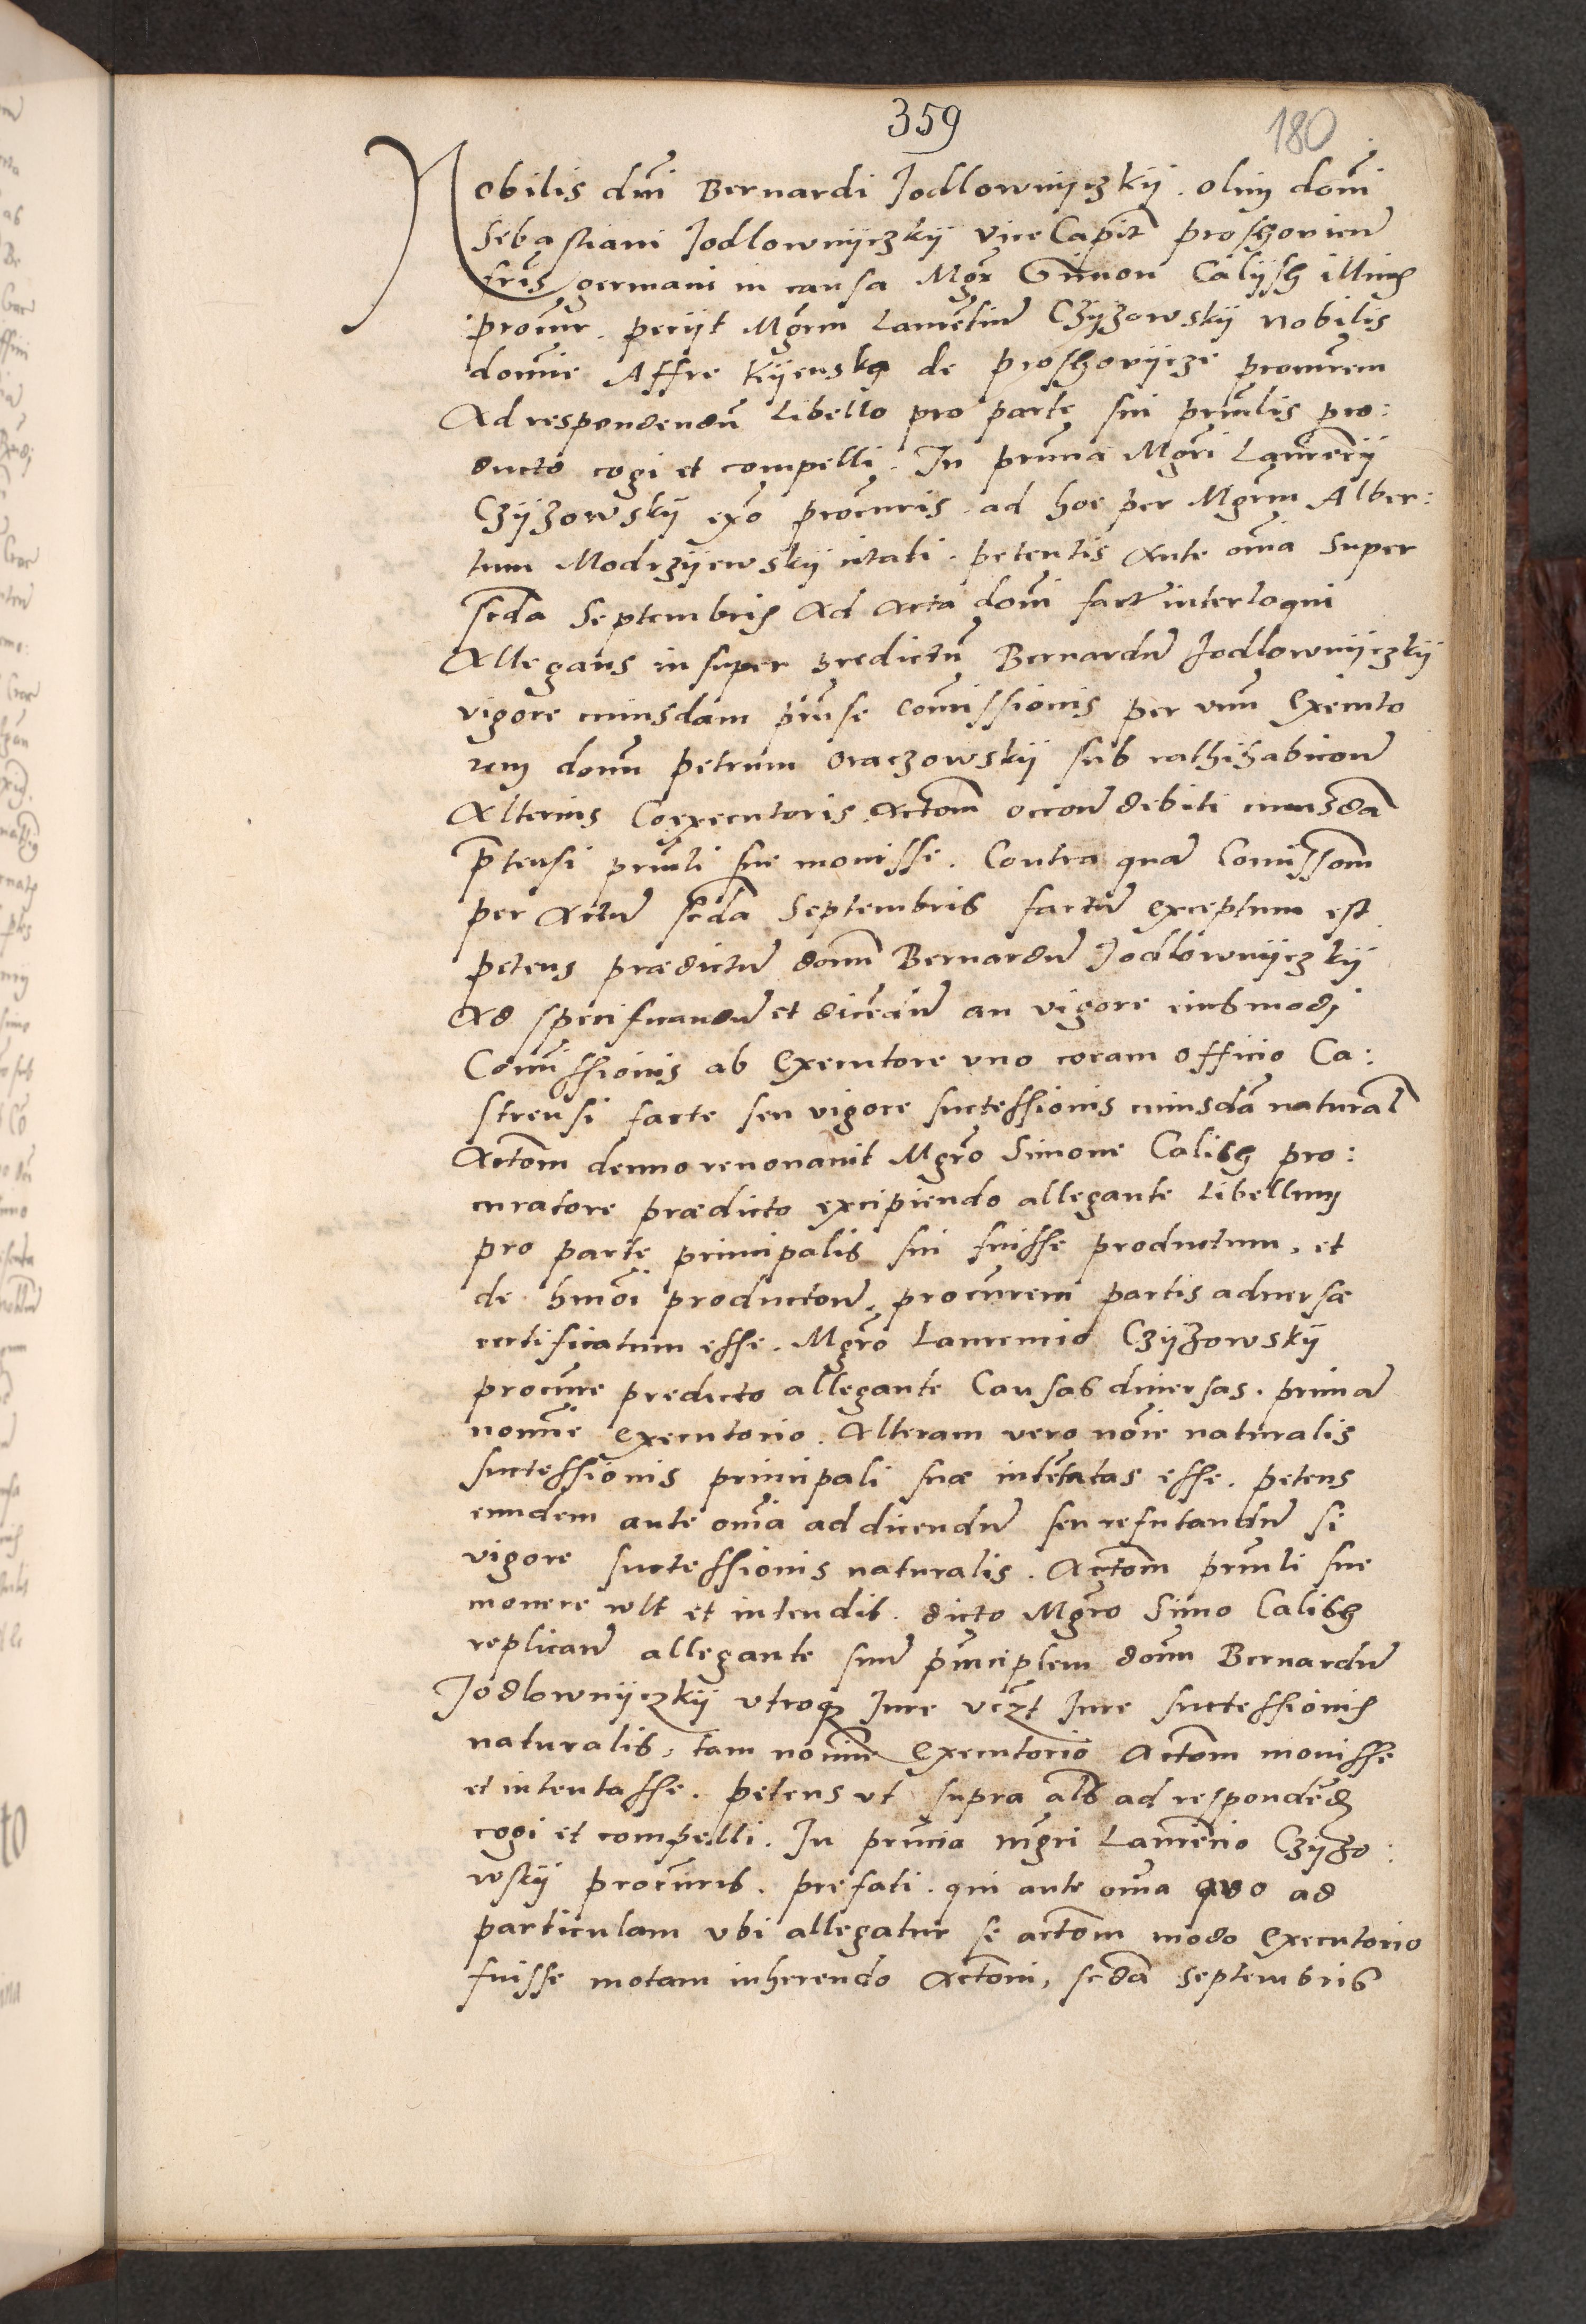 359
180
Nobilis dni Bernardi Jodlownyczkÿ . olim domi
Sebastiani Jodlownÿczkÿ viceCapit proshovien
fris germani in causa Mgr Simon Calÿsh illius
procur . petÿt Mgrm Laurentium Czÿzowskÿ nobilis
domne Affre Kÿenska de proshovÿcze procurem
Ad respondendum Libello pro parte sui prinlis pro:
ducto cogi et compelli . In prnia Mgri Laurencÿ
Czÿzowskÿ exo procuris . ad hoc per Mgrm Alber:
tum Modrzÿewskÿ citati . petentis Ante omia super
scda Septembris Ad Acta domi fact interloqui
Allegans in super predictum Bernardum Jodlownÿczkÿ
vigore cuiusdam prnse Comissionis per vnum Executo
rem domn petrum Oraczowskÿ sub rathihabicone
Alterius Coexecutoris Actom occone debiti cuiusda
ptensi prinli sue mouisse . Contra quam Comissom
per Actum scda Septembris factum exceptum est
petens prædictum domn Bernardum Jodlownÿczkÿ
Ad specificandum et dicendum an vigore eiusmodj
Comissionis ab Executore vno coram officio Ca:
strensi facte seu vigore successionis cuiusda natural
Actom denuo renouauit Mgro Simone Calish pro:
curatore prædicto excipiendo allegante Libellum
pro parte principalis sui fuisse productum, et
de hmoi productone, procurem partis aduersæ
certificatum esse . Mgro Laurencio Czÿzowskÿ
procure predicto allegante Causas diuersas . primam
nomine Executorio . Alteram vero noie naturalis
successionis principali suæ intentatas esse . petens
eundem ante omia ad dicendum seu refutandum si
vigore successionis naturalis . Actom prinli sue
mouere vult et intendit . dicto Mgro Simo Calish
replicand allegante suum principlem domn Bernardum
Jodlownÿczkÿ vtroq Jure vczt Jure successionis
naturalis, tam nomine Executorio Actom mouisse
et intentasse . petens vt supra als ad respondend
cogi et compelli . In prncia mgri Laurencio Czÿzo:
wskÿ procuris . prefati . qui ante omia quo ad
particulam vbi allegatur se actom modo Executorio
fuisse motam inherendo Actoni, scda Septembris